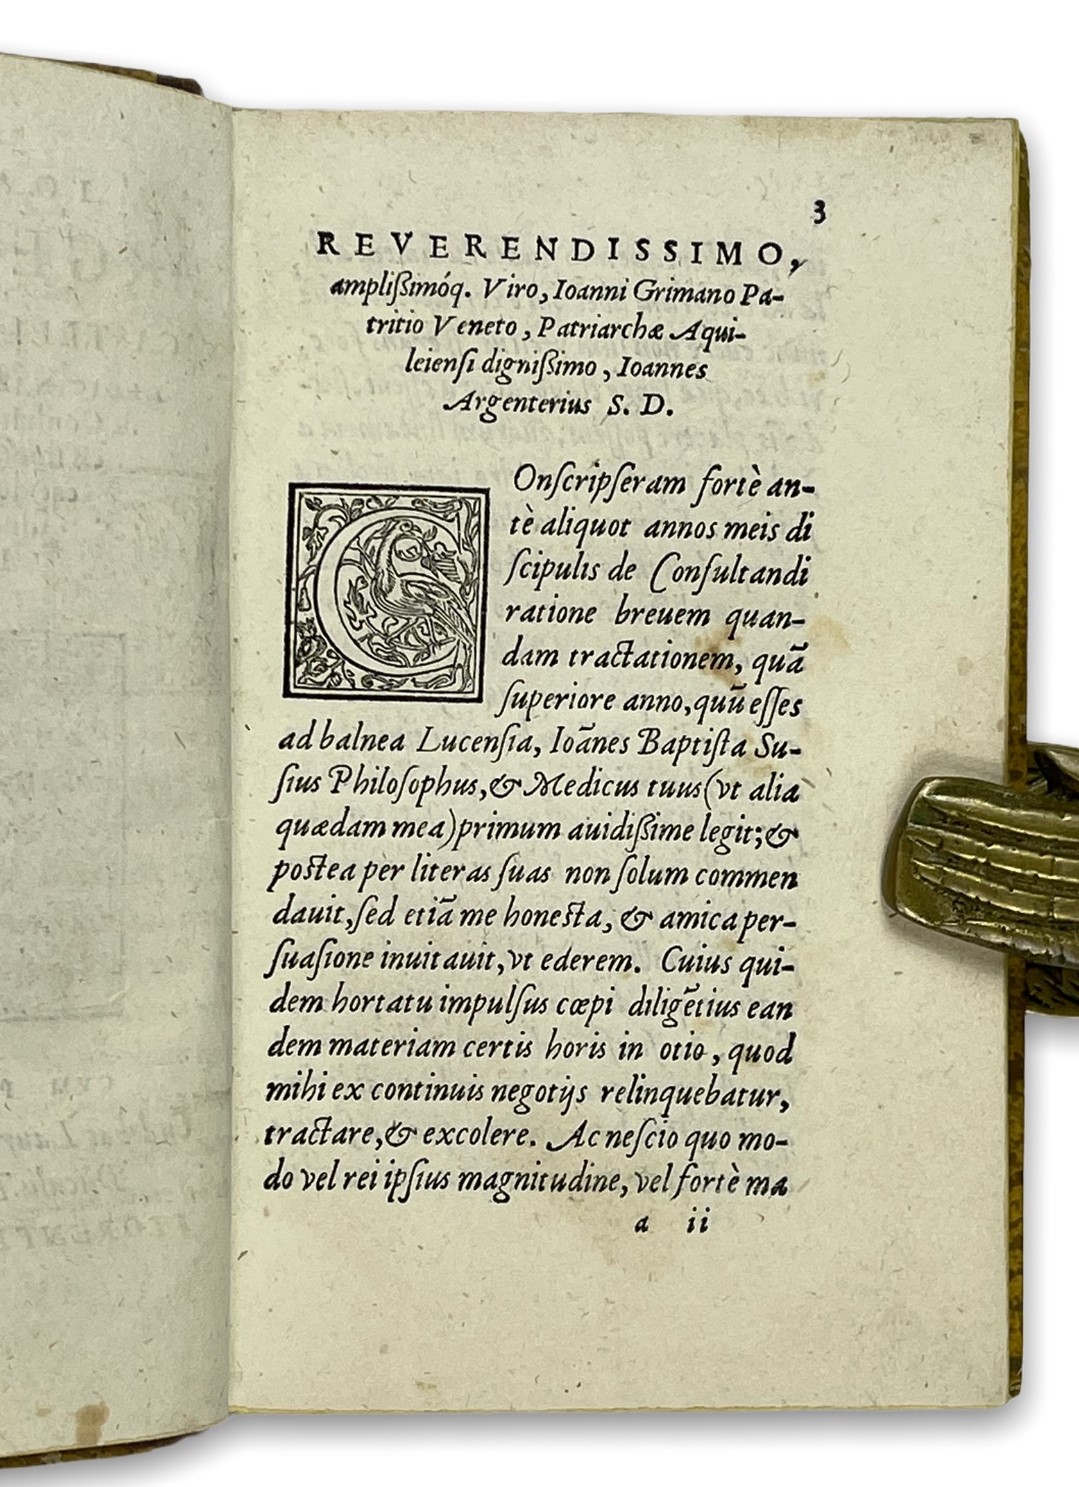 3
REVERENDISSIMO,
ampliſsimóq. Viro, Ioanni Grimano Pa-
tritio Veneto, Patriarchæ Aqui-
leienſi digniſsimo, Ioannes
Argenterius S. D.
COnſcripſeram fortè an-
tè aliquot annos meis di
ſcipulis de Conſultandi
ratione breuem quan-
dam tractationem, quã
ſuperiore anno, quũ eſſes
ad balnea Lucenſia, Ioãnes Baptiſta Su-
ſius Philoſophus, & Medicus tuus (vt alia
quædam mea) primum auidiſsime legit; &
poſtea per literas ſuas non ſolum commen
dauit, ſed etiã me honeſta, & amica per-
ſuaſione inuitauit, vt ederem. Cuius qui-
dem hortatu impulſus cœpi diligẽtius ean
dem materiam certis horis in otio, quod
mihi ex continuis negotijs relinquebatur,
tractare, & excolere. Ac neſcio quo mo-
do vel rei ipſius magnitudine, vel fortè ma
a ii